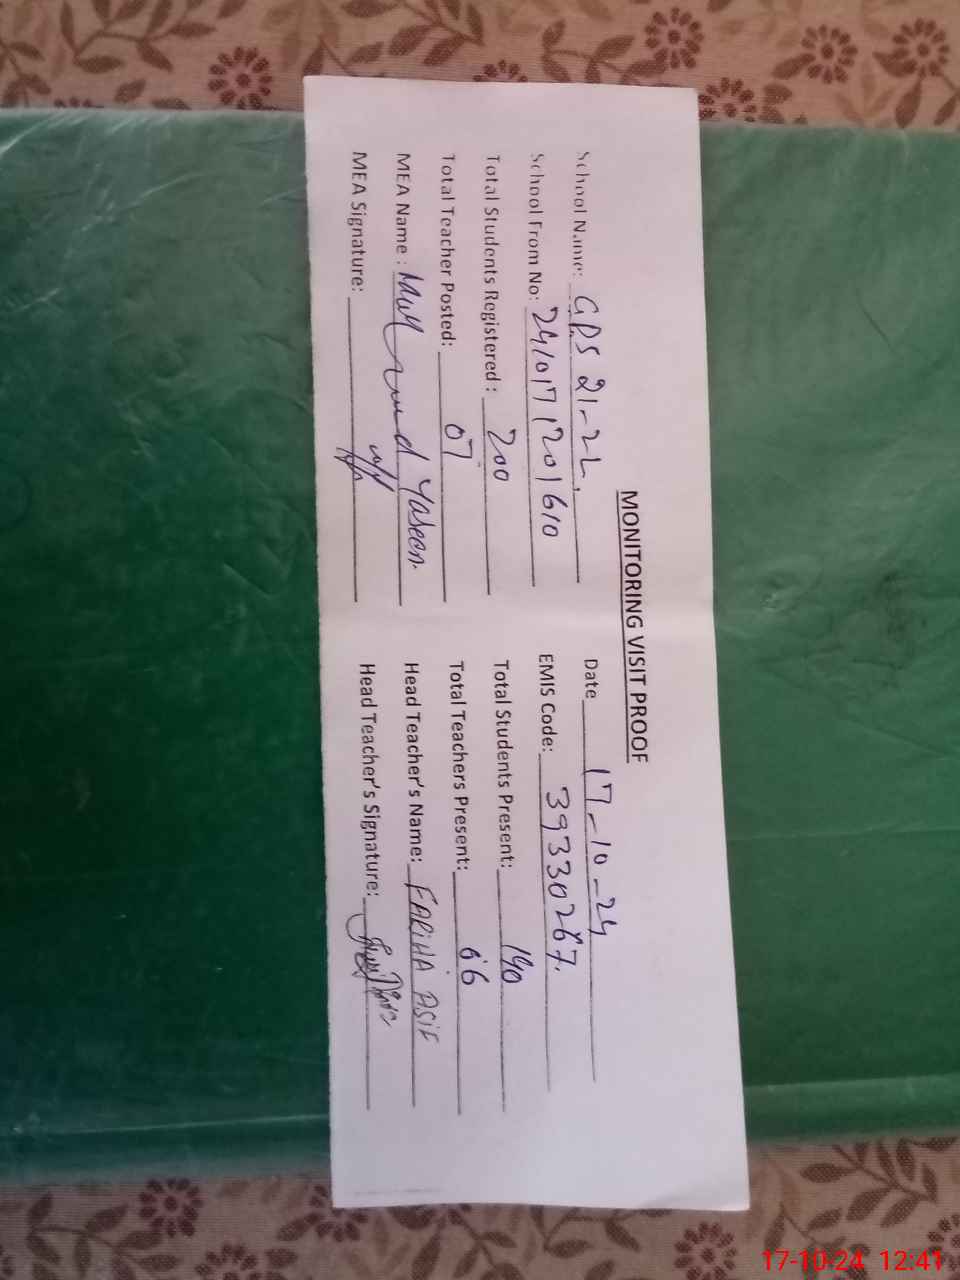 MONITORING VISIT PROOF
School Name: GPS 21-2L, Date 17-10-24
School From No: 2410171201610 EMIS Code: 39330267.
Total Students Registered: 200 Total Students Present: 190
Total Teacher Posted: 07 Total Teachers Present: 06
MEA Name: Yaseen. Head Teacher's Name: FARIHA ASIF
MEA Signature: Head Teacher's Signature:
17-10-24 12:41